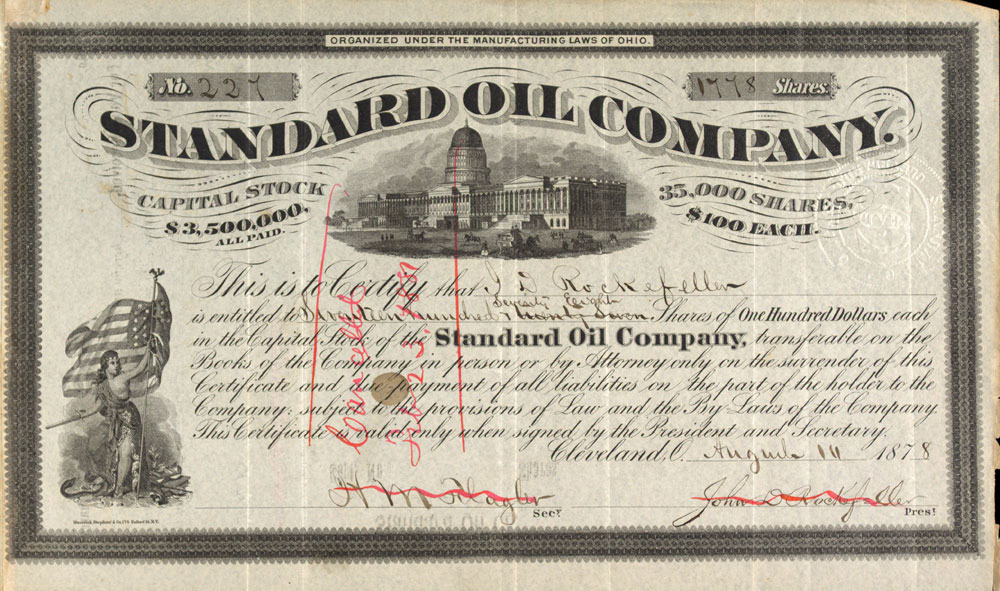 ORGANIZED UNDER THE MANUFACTURING LAWS OF OHIO.
No. 227
1778 Shares.
STANDARD OIL COMPANY.
CAPITAL STOCK
$3,500,000.
ALL PAID.
35,000 SHARES,
$100 EACH.
This is to Certify that J D Rockefeller
Seventy Eight
is entitled to Seventeen hundred & twenty seven Shares of One Hundred Dollars each
in the Capital Stock of the Standard Oil Company, transferable on the
Books of the Company in person or by Attorney only on the surrender of this
Certificate and due payment of all liabilities on the part of the holder to the
Company: subject to the provisions of Law and the By Laws of the Company.
This Certificate is valid only when signed by the President and Secretary.
Cleveland, O. August 14 1878
Cancelled
H M Flagler Secy
John D Rockefeller Prest